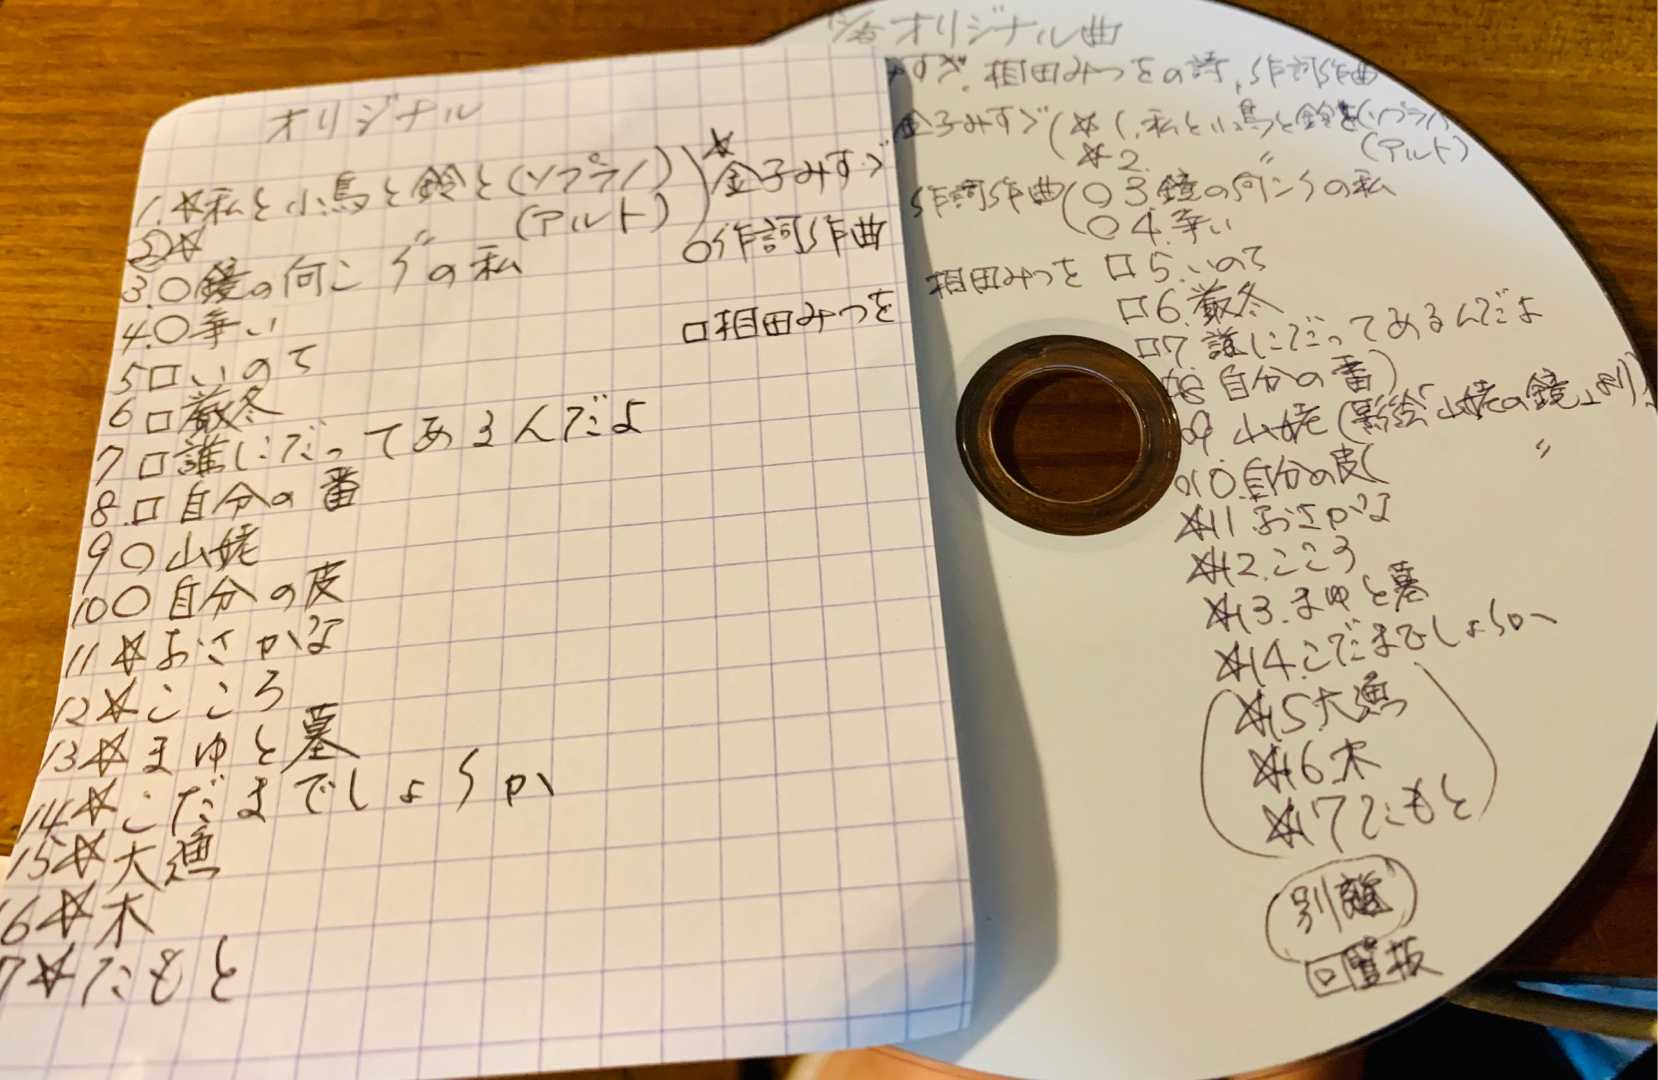 オリジナル
1.☆私と小鳥と鈴と(ソプラノ)
②☆ 〃 (アルト)
☆金子みすゞ
3.○鏡の向こうの私
○作詞作曲
4.○争い
□相田みつを
5□いのち
6□厳冬
7□誰にだってあるんだよ
8.□自分の番
9○山姥
10○自分の皮
11☆おさかな
12☆こころ
13☆まゆと墓
14☆こだまでしょうか
15☆大漁
16☆木
7☆たもと
オリジナル曲
すゞ.相田みつをの詩,作詞作曲
金子みすゞ(☆1.私と小鳥と鈴と(ソプラノ)
☆2. 〃 (アルト)
作詞作曲(○3鏡の向こうの私
○4.争い
相田みつを □5.いのち
□6.厳冬
□7.誰にだってあるんだよ
□8 自分の番)
○9 山姥(影絵「山姥の鏡」より)
○10.自分の皮( 〃
☆11.おさかな
☆12.こころ
☆13.まゆと墓
☆14.こだまでしょうか
☆15大漁
☆16.木
☆17たもと
別離
回覧板